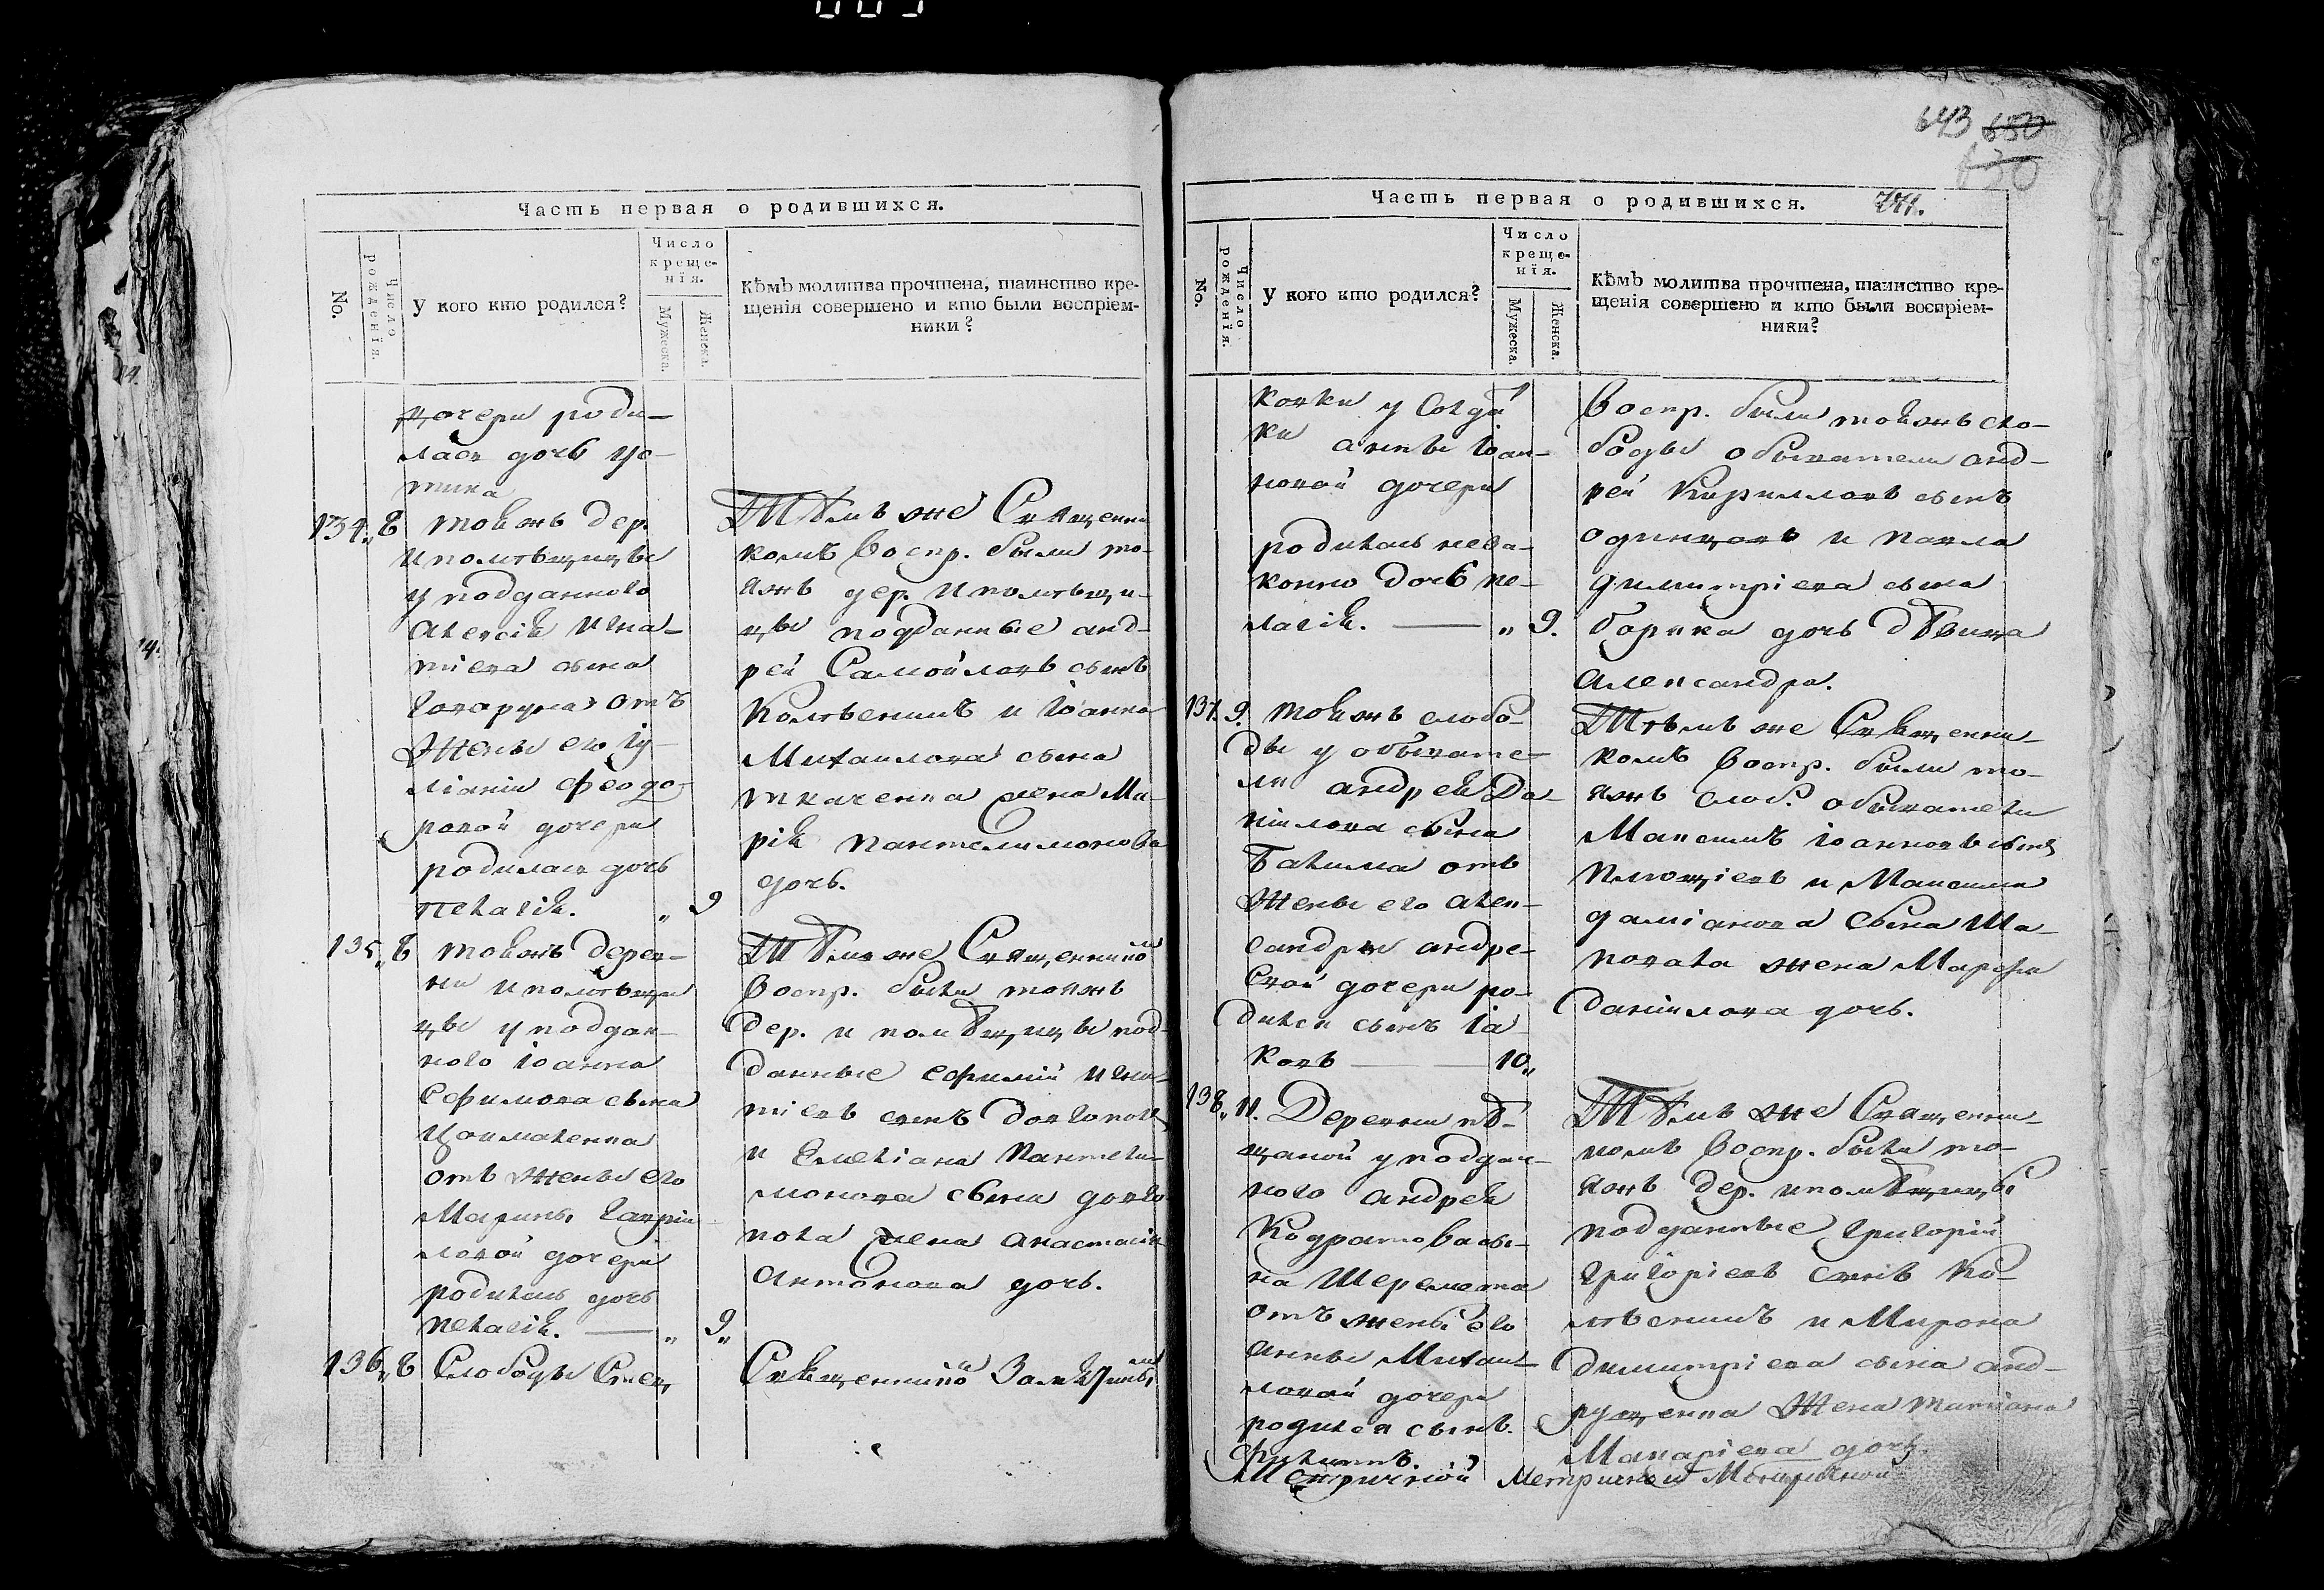 643 650
Часть первая о родившихся.
No.
Число рожденія.
У кого кто родился?
Число
креще-
нія.
Мужеска.
Женска.
Кѣмъ молитва прочтена, таинство кре-
щенія совершено и кто были воспріем-
ники?
дочери роди-
лась дочь Ус-
тина
134. 8 тоежъ дер.
и помѣщицы
у подданного
Алексія Игна-
тіева сына
отъ
жены его Іу-
ліаніи Феодо-
ровой дочери
родилась дочь
Пелагія. " 9
Тѣмъ же Священни
комъ Воспр. были то-
яжъ дер. и помѣщи-
цы подданные Анд-
рей Самойловъ сынъ
и Іоанна
Михаилова сына
Ткаченка жена Ма-
рія Пантелимонова
дочь.
135. 8 тоежъ дерев-
ни и помѣщи
цы у поддан-
ного Іоанна
Ефимова сына
отъ жены его
Марины Гаврии-
ловой дочери
родилась дочь
Пелагія. — " 9"
Тѣмъ же Священникомъ
Воспр. были тояжъ
дер. и помѣщицы под-
данные Ефимій Игна-
тіевъ сынъ
и Емеліана Пантели-
монова сына Довго
пола жена Анастасія
Антонова дочь.
136. 8 Слободы
Священникомъ
Часть первая о родившихся.
No.
Число рожденія.
У кого кто родился?
Число
креще-
нія.
Мужеска.
Женска.
Кѣмъ молитва прочтена, таинство кре-
щенія совершено и кто были воспріем-
ники?
ковки у Солдат
ки Анны Іоан-
новой дочери
родилась неза-
конно дочь Пе-
лагія. — " 9.
Воспр. были тоежъ сло-
боды обыватели Анд-
рей Кирилловъ сынъ
Одинцовъ и Павла
Димитріева сына
дочь дѣвица
Александра.
137. 9. тоежъ слобо-
ды у обывате-
ля Андрея Да-
ніилова сына
отъ
жены его Алек-
сандры Андре-
евой дочери ро-
дился сынъ Іа-
ковъ — 10"
Тѣмъ же Священни-
комъ Воспр. были то-
яжъ слоб. обыватели
Максимъ Іоанновъ сынъ
и Максима
Даміанова сына Ша-
повала жена Марфа
Даніилова дочь.
138. 11. Деревни пѣ-
щаной у поддан-
ного Андрея
Кодратова сы-
на Шеремета
отъ жены его
Анны Михаи-
ловой дочери
родился сынъ
Филиппъ.
Тѣмъ же Священни-
комъ Воспр. были то-
яжъ дер. и помѣщицы
подданные Григорій
Григоріевъ сынъ Ко-
и Мирона
Димитріева сына Анд-
рущенка жена Татіана
Макаріева дочь.
Метричной Метричной